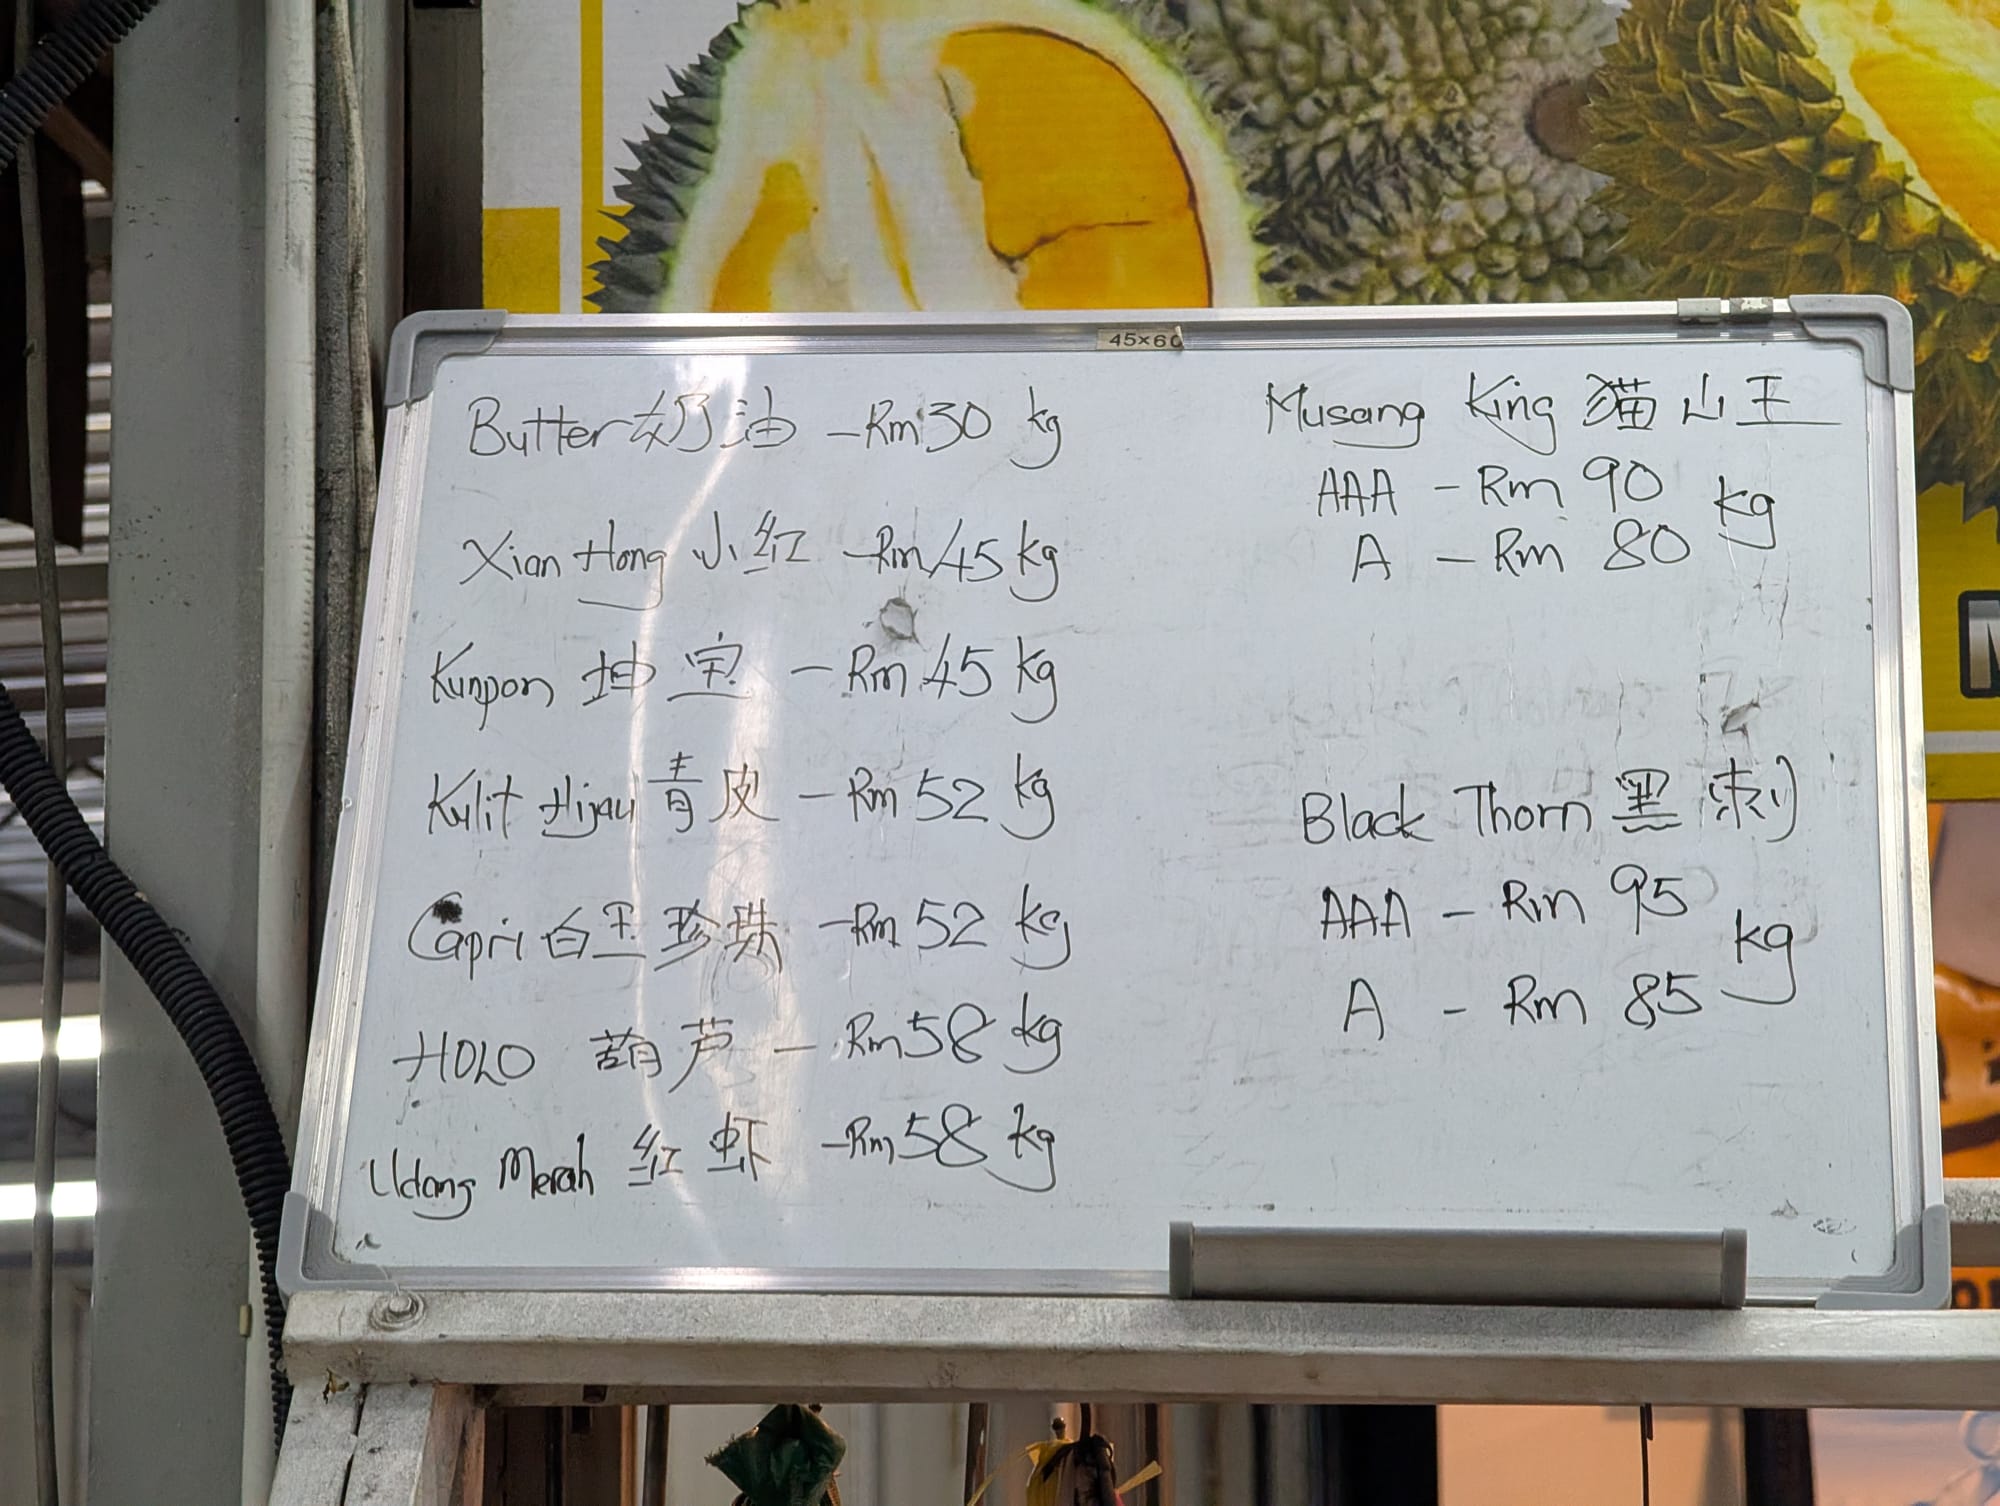 45×60
Butter 奶油 - Rm 30 kg
Xian Hong 小红 - Rm 45 kg
Kunpon 坤宝 - Rm 45 kg
Kulit Hijau 青皮 - Rm 52 kg
Capri 白玉珍珠 - Rm 52 kg
HOLO 葫芦 - Rm 58 kg
Udang Merah 红虾 - Rm 58 kg
Musang King 猫山王
AAA - Rm 90 kg
A - Rm 80
Black Thorn 黑刺
AAA - Rm 95 kg
A - Rm 85